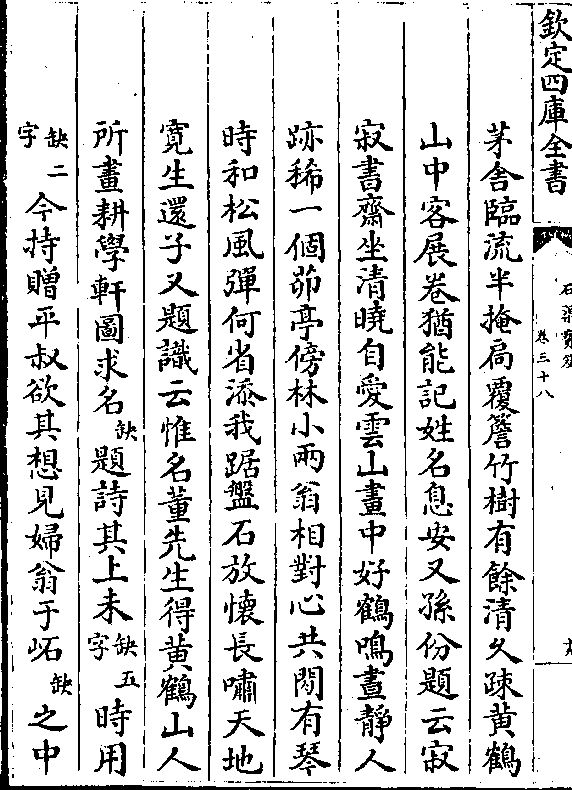 欽定四庫全書
卷三十八
茅舎臨流半掩扃覆簷竹樹有餘清久疎黄鶴
山中客展卷猶能記姓名息安又孫份題云寂
寂書齋坐清曉自愛雲山畫中好鶴鳴晝靜人
跡稀一個茆亭傍林小兩翁相對心共閒有琴
時和松風彈何省添我踞盤石放懷長嘯天地
寛生還子又題識云惟名董先生得黄鶴山人
所畫耕學軒圖求名缺題詩其上未缺五字時用
缺二字今持贈平叔欲其想見婦翁于岵缺之中